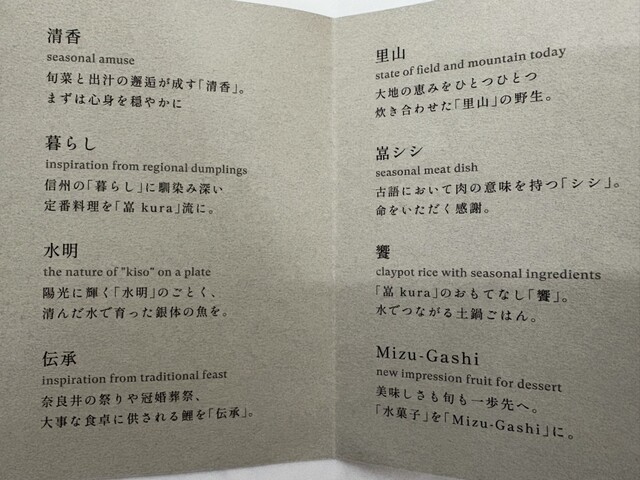 清香
seasonal amuse
旬菜と出汁の邂逅が成す「清香」。
まずは心身を穏やかに
暮らし
inspiration from regional dumplings
信州の「暮らし」に馴染み深い
定番料理を「嵓 kura」流に。
水明
the nature of "kiso" on a plate
陽光に輝く「水明」のごとく、
清んだ水で育った銀体の魚を。
伝承
inspiration from traditional feast
奈良井の祭りや冠婚葬祭、
大事な食卓に供される鯉を「伝承」。
里山
state of field and mountain today
大地の恵みをひとつひとつ
炊き合わせた「里山」の野生。
嵓シシ
seasonal meat dish
古語において肉の意味を持つ「シシ」。
命をいただく感謝。
饗
claypot rice with seasonal ingredients
「嵓 kura」のおもてなし「饗」。
水でつながる土鍋ごはん。
Mizu-Gashi
new impression fruit for dessert
美味しさも旬も一歩先へ。
「水菓子」を「Mizu-Gashi」に。